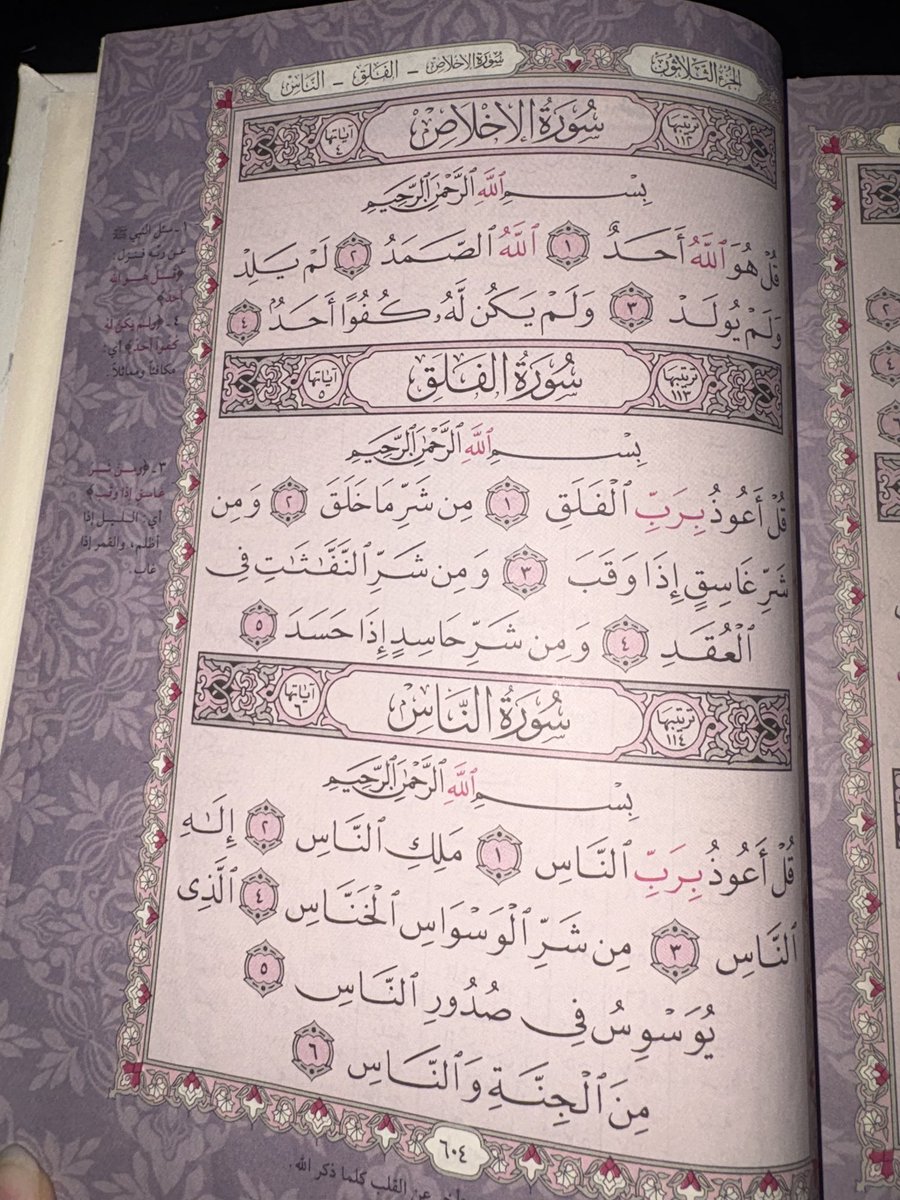 الجزء الثلاثون
سورة الإخلاص - الفلق - الناس
ترتيبها ١١٢
سُورَةُ الإِخْلَاصِ
آياتها ٤
بِسْمِ ٱللَّهِ ٱلرَّحْمَٰنِ ٱلرَّحِيمِ
قُلْ هُوَ ٱللَّهُ أَحَدٌ ١ ٱللَّهُ ٱلصَّمَدُ ٢ لَمْ يَلِدْ
وَلَمْ يُولَدْ ٣ وَلَمْ يَكُن لَّهُۥ كُفُوًا أَحَدٌۢ ٤
ترتيبها ١١٣
سُورَةُ الفَلَقِ
آياتها ٥
بِسْمِ ٱللَّهِ ٱلرَّحْمَٰنِ ٱلرَّحِيمِ
قُلْ أَعُوذُ بِرَبِّ ٱلْفَلَقِ ١ مِن شَرِّ مَا خَلَقَ ٢ وَمِن
شَرِّ غَاسِقٍ إِذَا وَقَبَ ٣ وَمِن شَرِّ ٱلنَّفَّٰثَٰتِ فِى
ٱلْعُقَدِ ٤ وَمِن شَرِّ حَاسِدٍ إِذَا حَسَدَ ٥
ترتيبها ١١٤
سُورَةُ النَّاسِ
آياتها ٦
بِسْمِ ٱللَّهِ ٱلرَّحْمَٰنِ ٱلرَّحِيمِ
قُلْ أَعُوذُ بِرَبِّ ٱلنَّاسِ ١ مَلِكِ ٱلنَّاسِ ٢ إِلَٰهِ
ٱلنَّاسِ ٣ مِن شَرِّ ٱلْوَسْوَاسِ ٱلْخَنَّاسِ ٤ ٱلَّذِى
يُوَسْوِسُ فِى صُدُورِ ٱلنَّاسِ ٥
مِنَ ٱلْجِنَّةِ وَٱلنَّاسِ ٦
١ - سئل النبي ﷺ
عن ربّه فنزل:
﴿قل هو الله
أحد﴾
٤ - ﴿ولم يكن له
كفوا أحد﴾ أي:
مكافئاً ومماثلاً.
٣ - ﴿ومن شر
غاسق إذا وقب﴾
أي: الليل إذا
أظلم، والقمر إذا
غاب.
٦٠٤
عن القلب كلما ذكر الله.